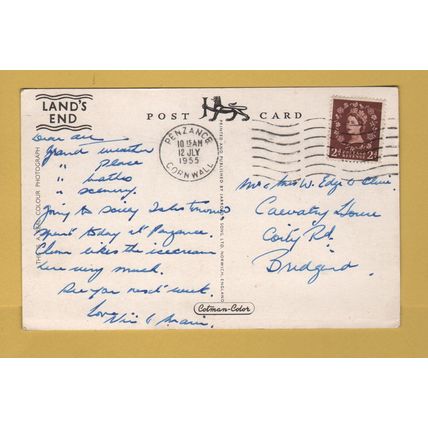 LAND'S
END
POST CARD
PENZANCE
10 15 AM
12 JLY
1955
CORNWALL
2D POSTAGE REVENUE 2D
Dear all
Grand weather
" place
" baths
" scenery.
Going to Scilly Isles
Spent today at Penzance.
likes the icecream
here very much.
See you next week.
Love
Mr & Mrs W. Edge &
House
Coity Rd.
Bridgend
THIS IS A COLOUR PHOTOGRAPH
PRINTED AND PUBLISHED BY JARROLD & SONS LTD. NORWICH, ENGLAND
Cotman-Color